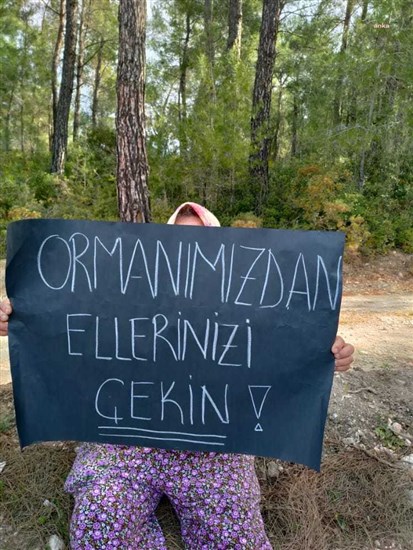 anka
ORMANIMIZDAN
ELLERİNİZİ
ÇEKİN!